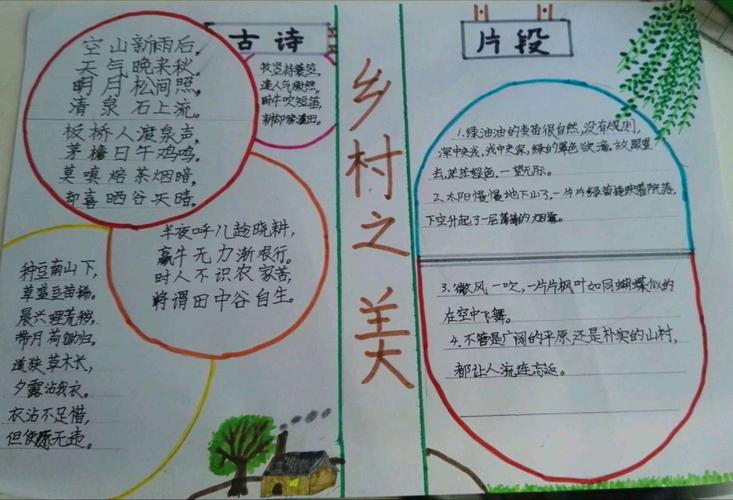 古诗
空山新雨后，
天气晚来秋。
明月松间照，
清泉石上流。
板桥人渡泉声，
茅檐日午鸡鸣。
莫嗔焙茶烟暗，
却喜晒谷天晴。
牧竖持蓑笠，
逢人气傲然。
卧牛吹短笛，
耕却傍溪田。
半夜呼儿趁晓耕，
羸牛无力渐艰行。
时人不识农家苦，
将谓田中谷自生。
种豆南山下，
草盛豆苗稀。
晨兴理荒秽，
带月荷锄归。
道狭草木长，
夕露沾我衣。
衣沾不足惜，
但使愿无违。
乡村之美
片段
1.绿油油的麦苗很自然,没有规则,
深中夹浅,浅中夹深,绿的翠色欲滴,放眼望
去,茫茫绿色,一望无际。
2.太阳慢慢地下山了,一片片绿苗掩映着院落,
下空升起了一层薄薄的烟雾。
3.微风一吹,一片片枫叶如同蝴蝶似的
在空中飞舞。
4.不管是广阔的平原还是朴实的山村,
都让人流连忘返。